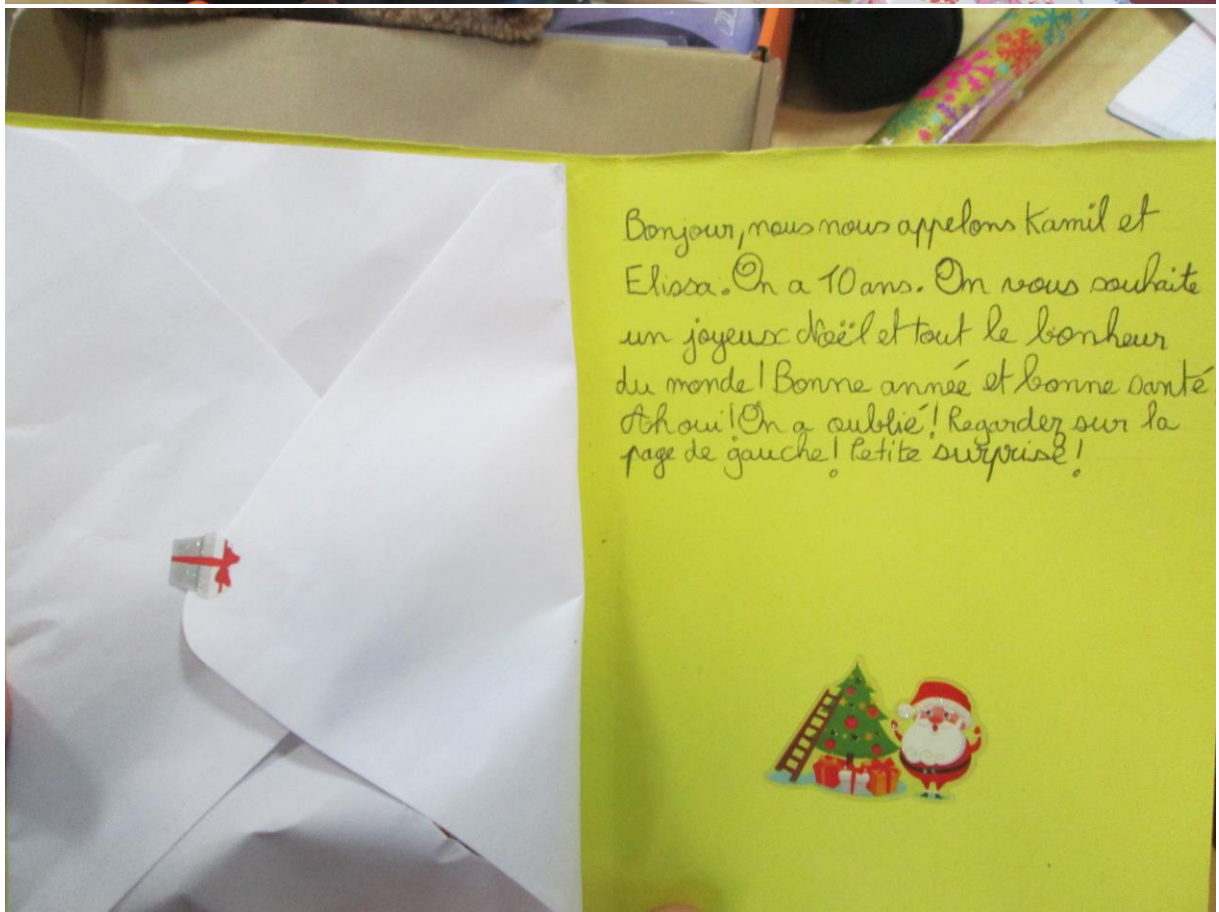 Bonjour, nous nous appelons Kamil et
Elissa. On a 10 ans. On vous souhaite
un joyeux Noël et tout le bonheur
du monde! Bonne année et bonne santé
Ah oui! On a oublié! Regardez sur la
page de gauche! Petite surprise!